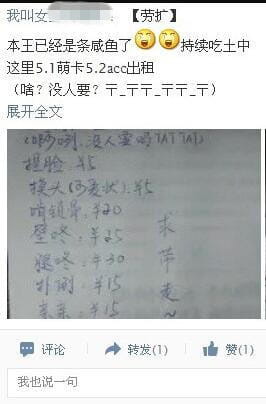 我叫女
【劳扩】
本王已经是条咸鱼了 持续吃土中
这里5.1萌卡5.2acc出租
（啥？没人要？〒_〒〒_〒〒_〒）
展开全文
没人要吗TAT TAT)
捏脸：¥5
摸头(可爱状)：¥5
啃锁骨：¥20
壁咚：¥25
腿咚：¥30
扑倒：¥15
亲亲：¥15
求
带
走
~
评论 转发(1) 赞(1)
我也说一句